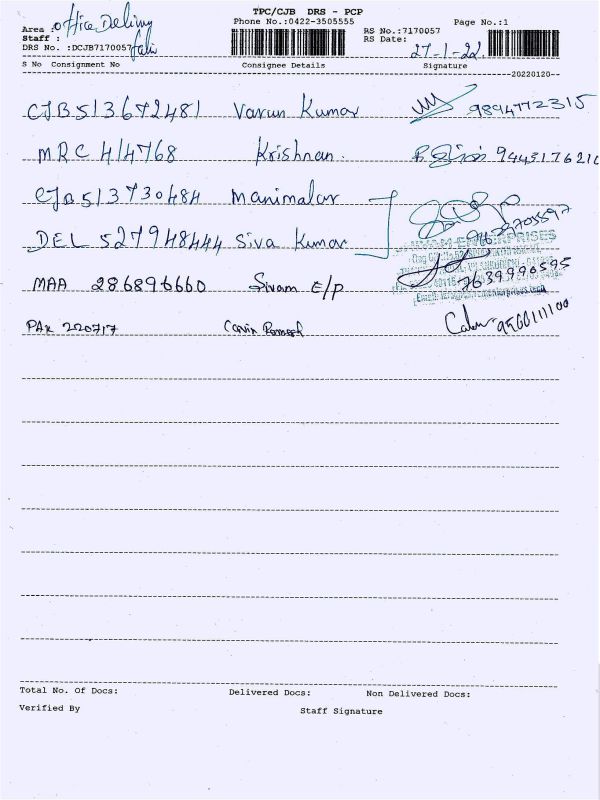 TPC/CJB DRS - PCP
Phone No.:0422-3505555
Page No.:1
Area : office Delivery
RS No.:7170057
Staff :
RS Date: 27-1-22
DRS No. :DCJB7170057
S No Consignment No Consignee Details Signature
20220120
CJB513672481 Varun Kumar 9894772315
MRC 414768 Krishnan.
CJB513730484 Manimalar
DEL 527948444 Siva Kumar
MAA 286896660 Sivam E/P 7639996595
220717
Total No. Of Docs: Delivered Docs: Non Delivered Docs:
Verified By Staff Signature